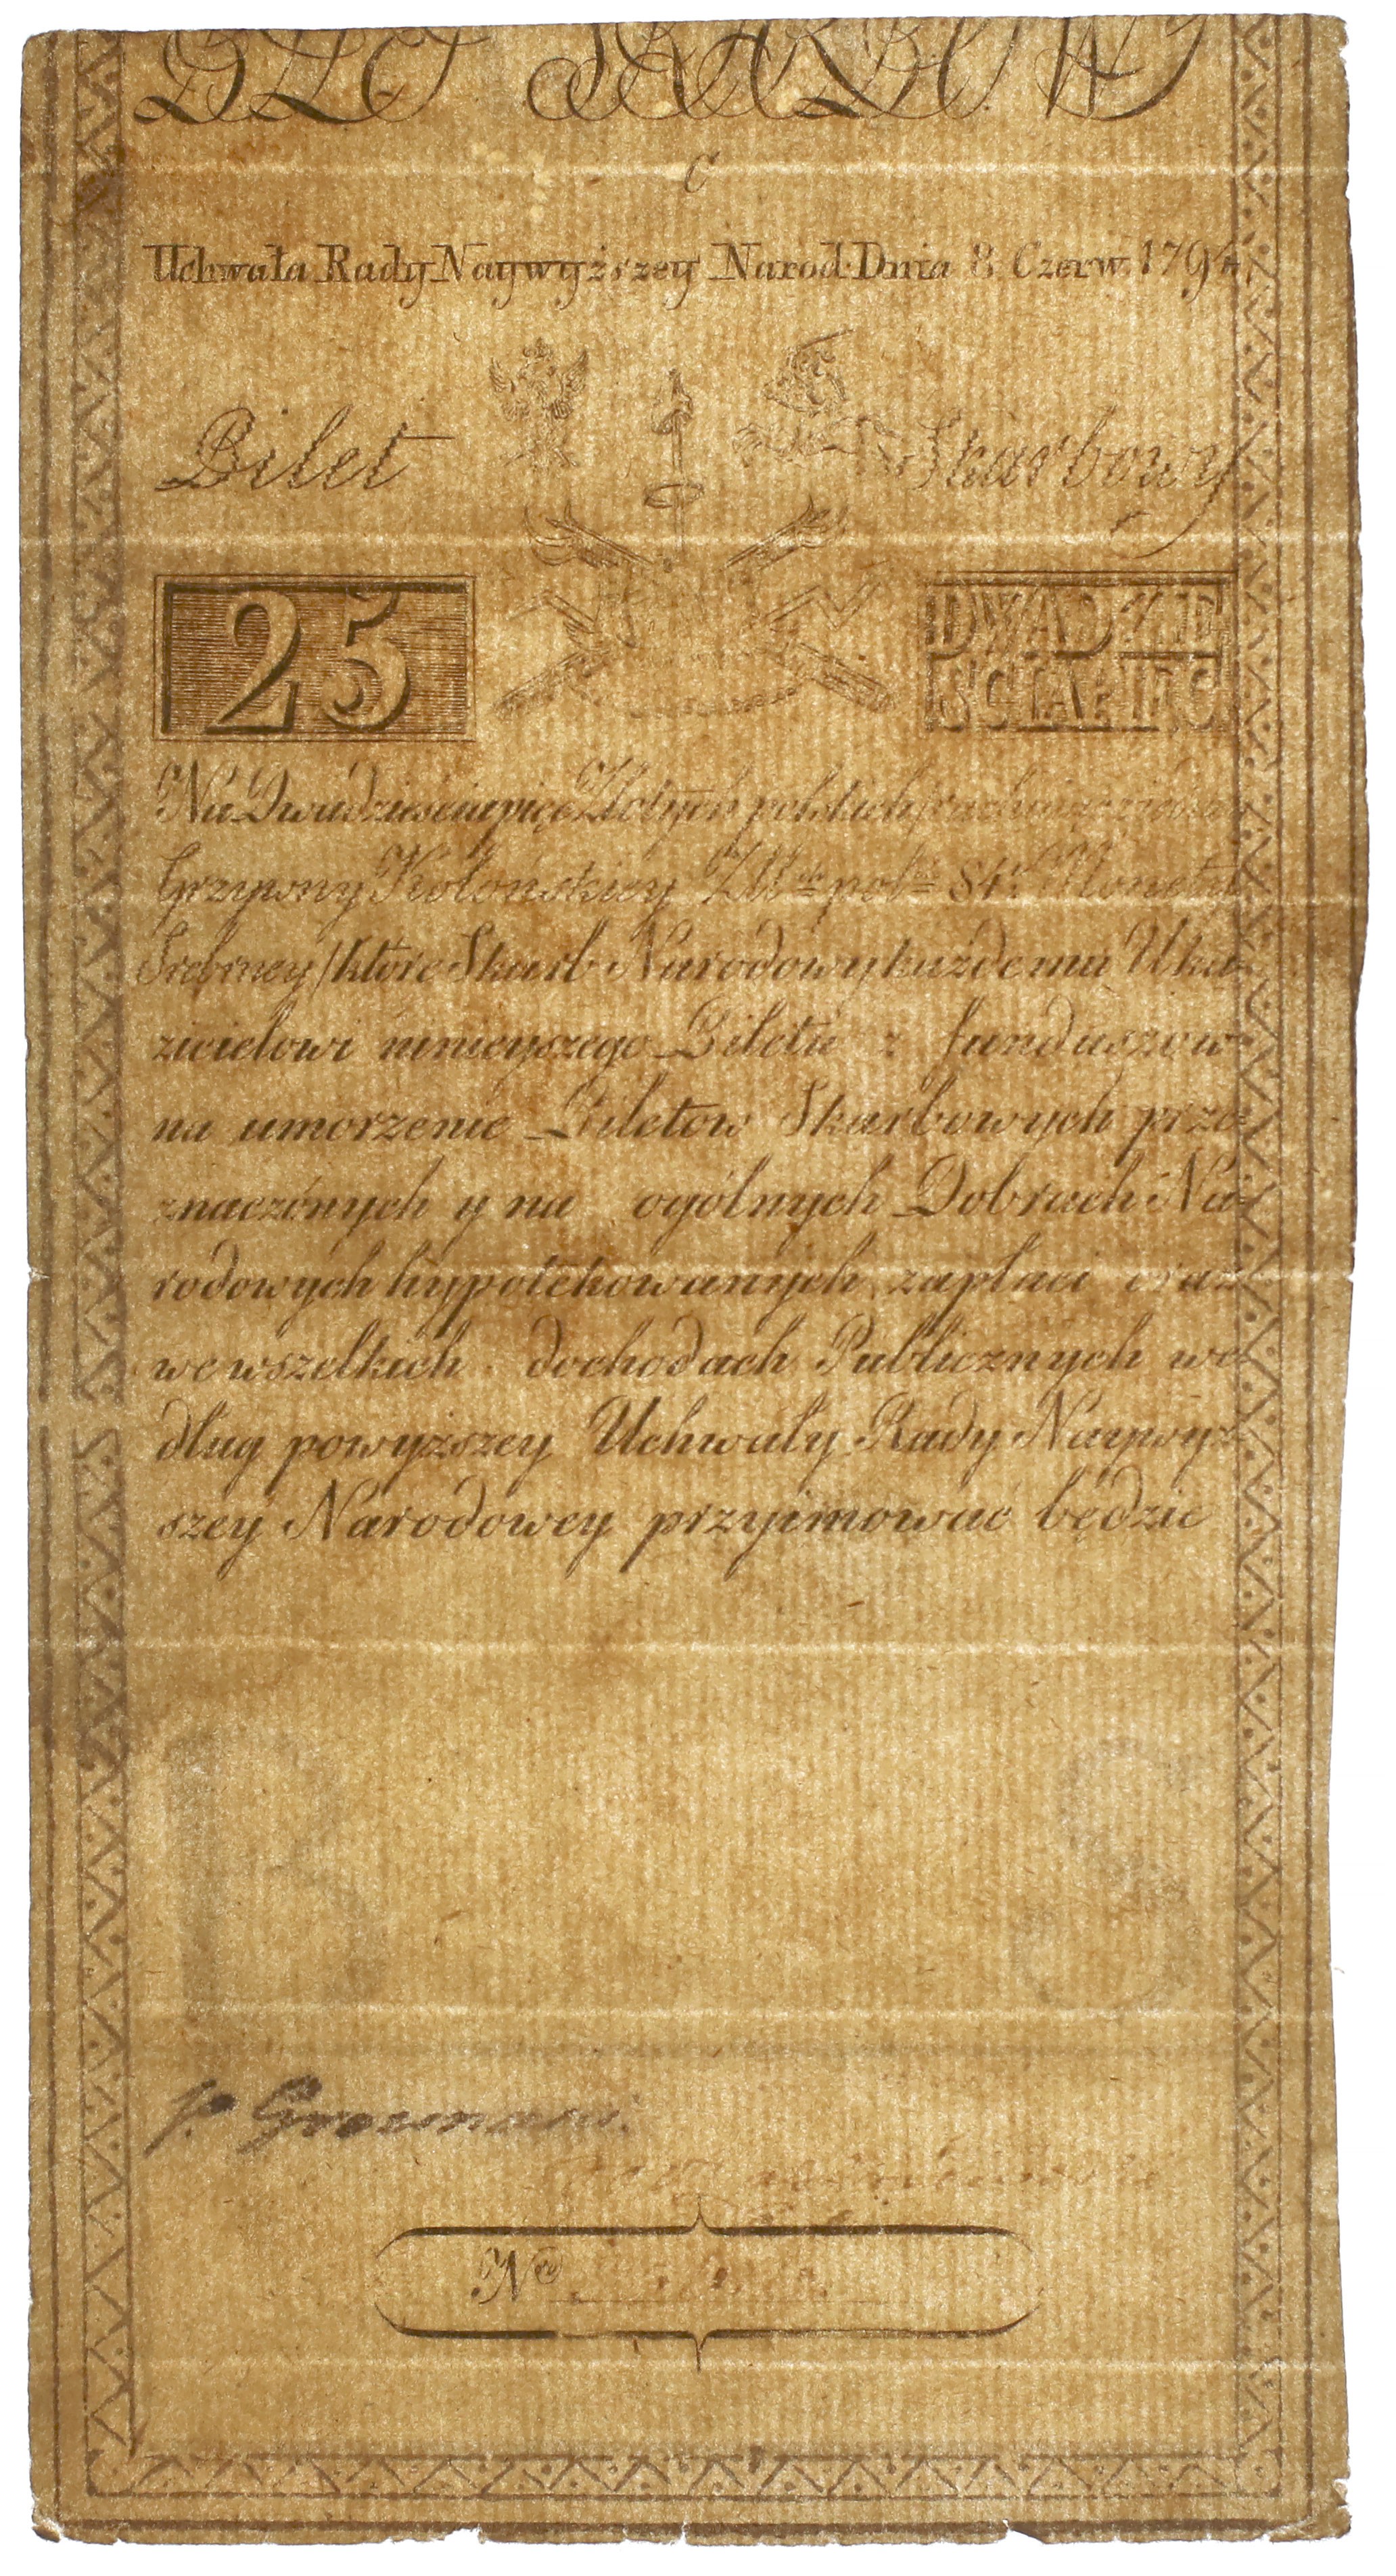 BILET SKARBOWY
C
Uchwała Rady Naywyższey Narod. Dnia 8. Czerw. 1794.
Bilet Skarbowy
25 DWADZIE
ŚCIA PIĘĆ
Na Dwadzieściapięć Złotych polskich rachuiąc z iedney
Grzywny Kolońskiey Złł. pol. 84. Monety
Srebrney /które Skarb Narodowy każdemu Oka-
zicielowi ninieyszego Biletu z funduszow
na umorzenie Biletow Skarbowych prze-
znaczonych y na ogólnych Dobrach Na-
rodowych hypotekowanych, zapłaci oraz
we wszelkich dochodach Publicznych we-
dług powyższey Uchwały Rady Naywyż-
szey Narodowey przyimować będzie
B S
Nro